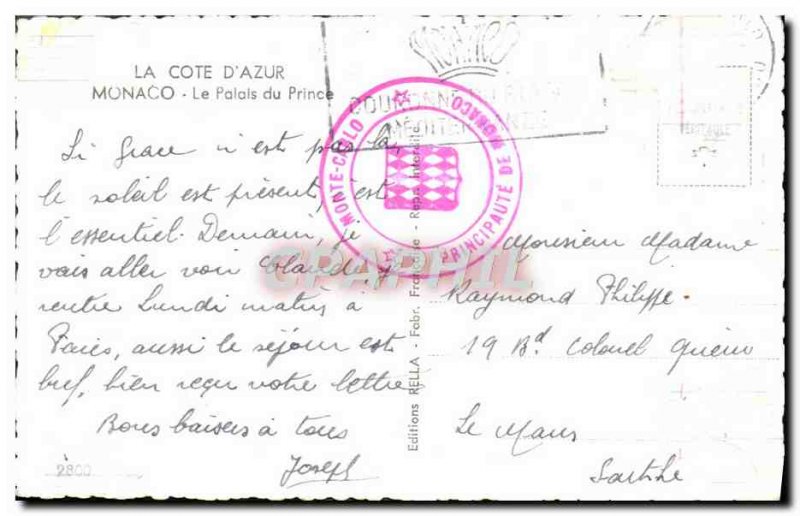 LA COTE D'AZUR
MONACO - Le Palais du Prince
MONACO
MONTE-CARLO
PRINCIPAUTÉ DE MONACO
Si Grace n'est pas là,
le soleil est présent, c'est
l'essentiel. Demain, je
vais aller voir Claude, je
rentre Lundi matin à
Paris, aussi le séjour est
bref, bien reçu votre lettre
Bons baisers à tous
Joseph
2800
Editions RELLA - Fabr. Française - Repr. Interdite
CPAPHIL
Monsieur Madame
Raymond Philippe
19 Bd Colonel
Le Mans
Sarthe